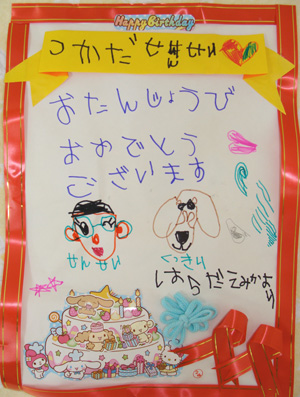 Happy Birthday
つかだ せんせい
おたんじょうび
おめでとう
ございます
せんせい
くっきり
はらだえみかより